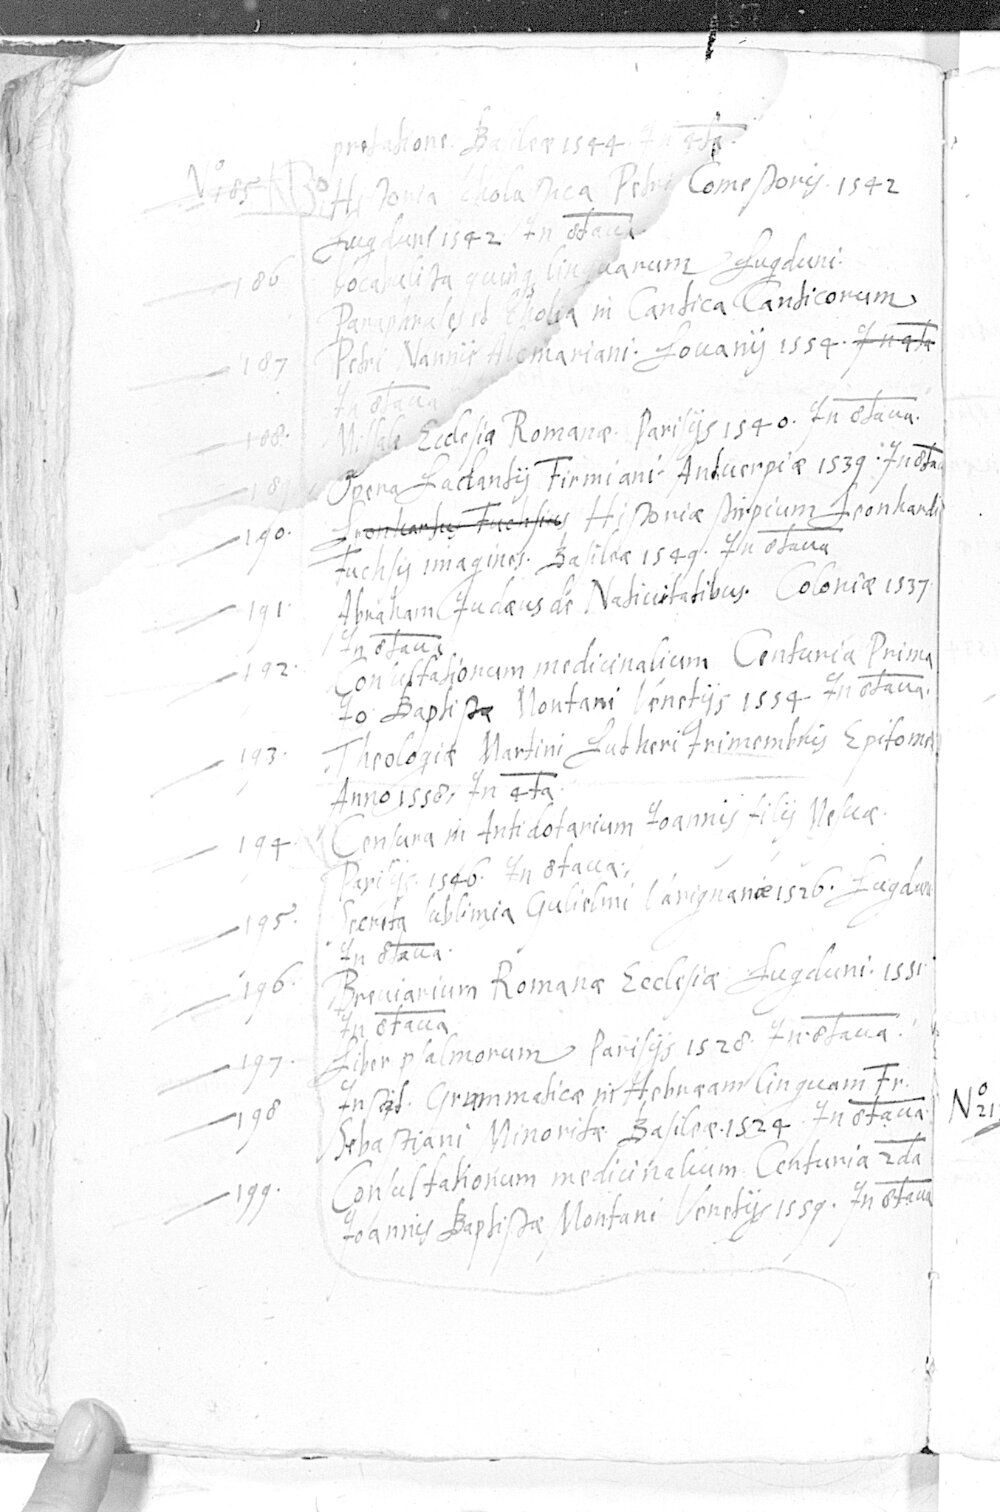 pretatione. Basileæ 1544. In 4ta.
No 185 Historia scholastica Petri Comestoris. 1542
Lugduni 1542 In 8taua
186 Vocabulista quinq linguarum Lugduni.
Paraphrases et Scholia in Cantica Canticorum
187 Petri Nannii Alcmariani. Louanij 1554. In 4ta
In 8taua
188. Missale Ecclesiæ Romanæ. Parisijs 1540. In 8taua.
189 Opera Lactantij Firmiani. Antuerpiæ 1539. In 8taua
190. Leonhartus Fuchsius Historiæ stirpium Leonhardi
Fuchsij imagines. Basileæ 1549. In 8taua
191. Abraham Judæus de Natiuitatibus. Coloniæ 1537.
In 8taua
192. Consultationum medicinalium Centuria Prima
Jo. Baptistæ Montani Venetijs 1554 In 8taua.
193. Theologiæ Martini Lutheri trimembris Epitome
Anno 1558, In 4ta.
194. Censura in Antidotarium Joannis filij Mesuæ.
Parisijs. 1546. In 8taua.
195. Secreta sublimia Gulielmi Varignanæ 1526. Lugduni
In 8taua.
196. Breuiarium Romanæ Ecclesiæ Lugduni. 1551.
In 8taua
197. Liber psalmorum Parisijs 1528. In 8taua.
198 Instit. Grammaticæ in Hebræam linguam Fr.
Sebastiani Minoritæ Basileæ. 1524. In 8taua
199. Consultationum medicinalium Centuria 2da
Joannis Baptistæ Montani Venetijs 1559. In 8taua
No 21